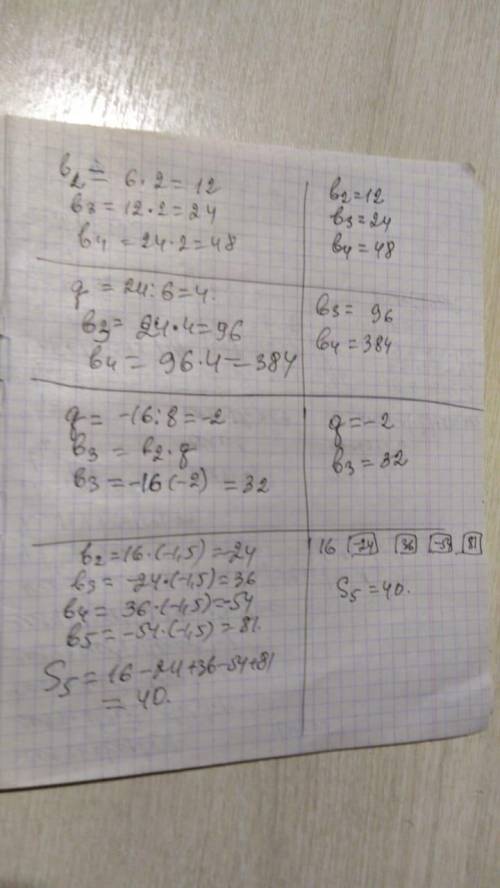 b₂ = 6·2=12
b₃ = 12·2=24
b₄ = 24·2=48
b₂=12
b₃=24
b₄=48
q = 24:6=4.
b₃= 24·4=96
b₄= 96·4=384
b₃= 96
b₄=384
q= -16:8=-2
b₃ = b₂·q
b₃ =-16(-2) =32
q=-2
b₃ =32
b₂=16·(-1,5)=-24
b₃= -24·(-1,5)=36
b₄= 36·(-1,5)=-54
b₅= -54·(-1,5)=81.
S₅=16-24+36-54+81
= 40.
16 -24 36 -54 81
S₅=40.